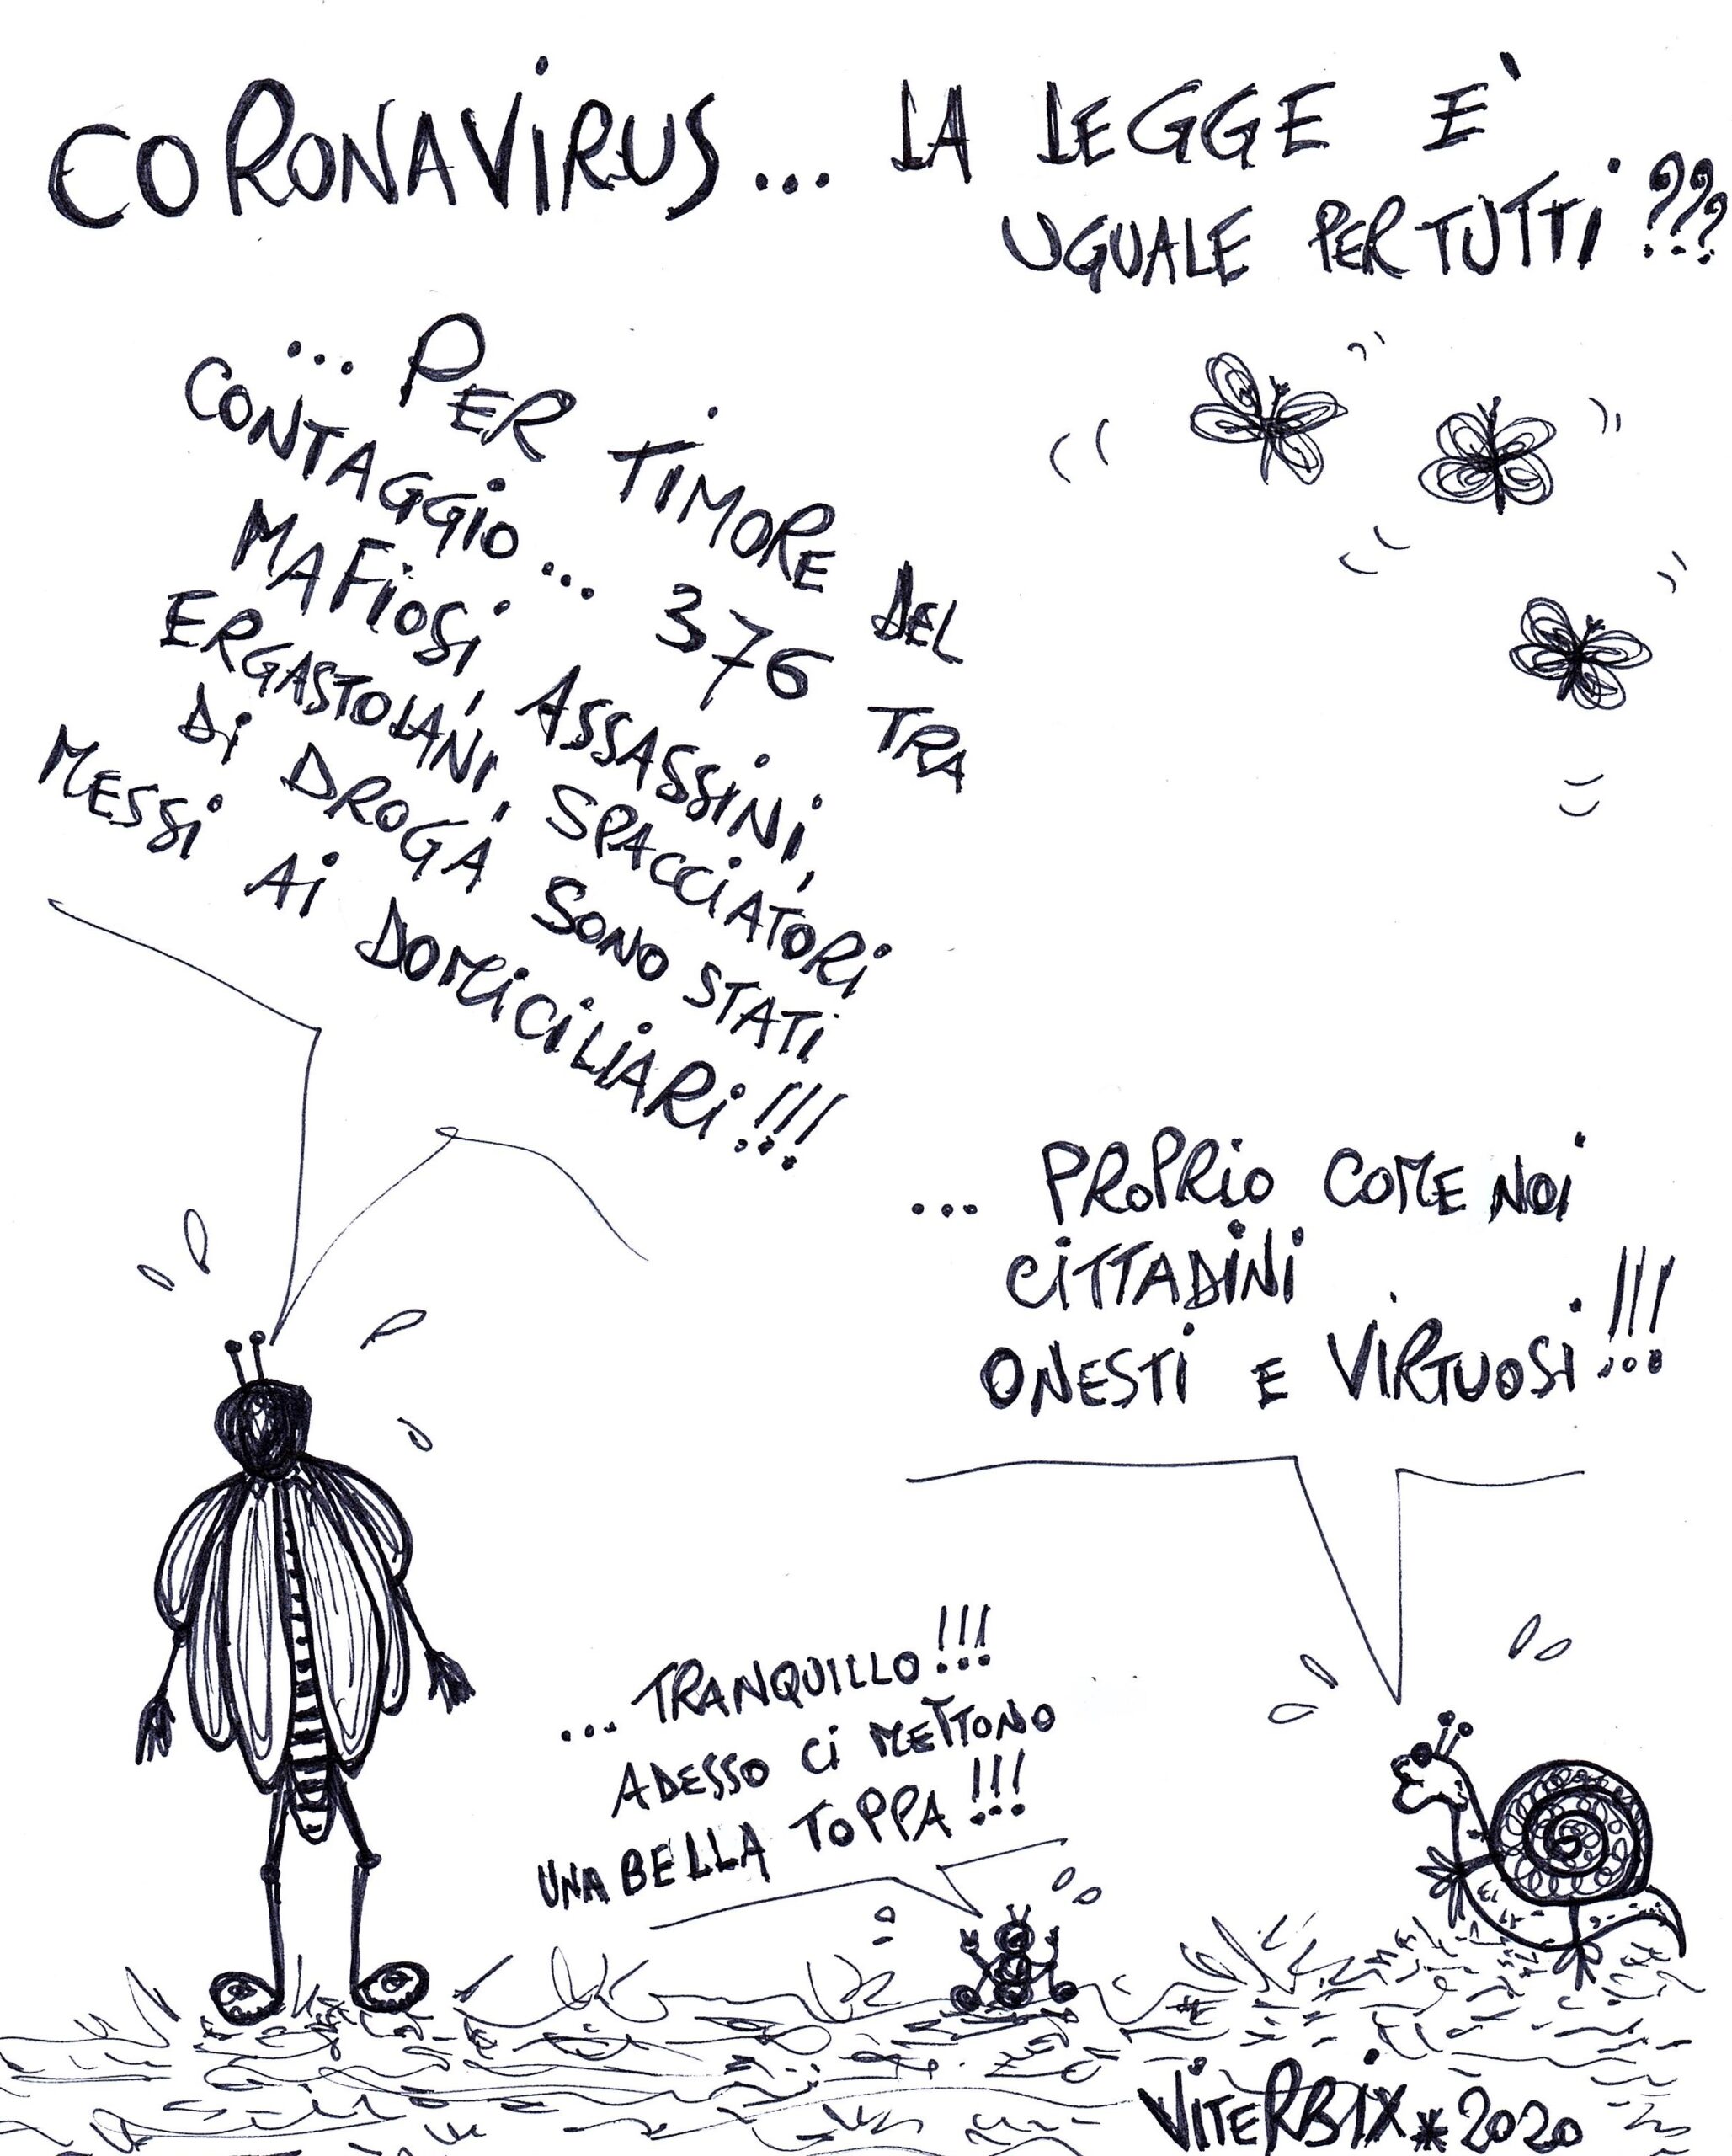 CORONAVIRUS... LA LEGGE E'
UGUALE PER TUTTI???
... PER TIMORE DEL
CONTAGGIO... 376 TRA
MAFIOSI, ASSASSINI,
ERGASTOLANI, SPACCIATORI
DI DROGA SONO STATI
MESSI AI DOMICILIARI!!!
... PROPRIO COME NOI
CITTADINI
ONESTI E VIRTUOSI!!!
... TRANQUILLO!!!
ADESSO CI METTONO
UNA BELLA TOPPA!!!
VITERBIX*2020